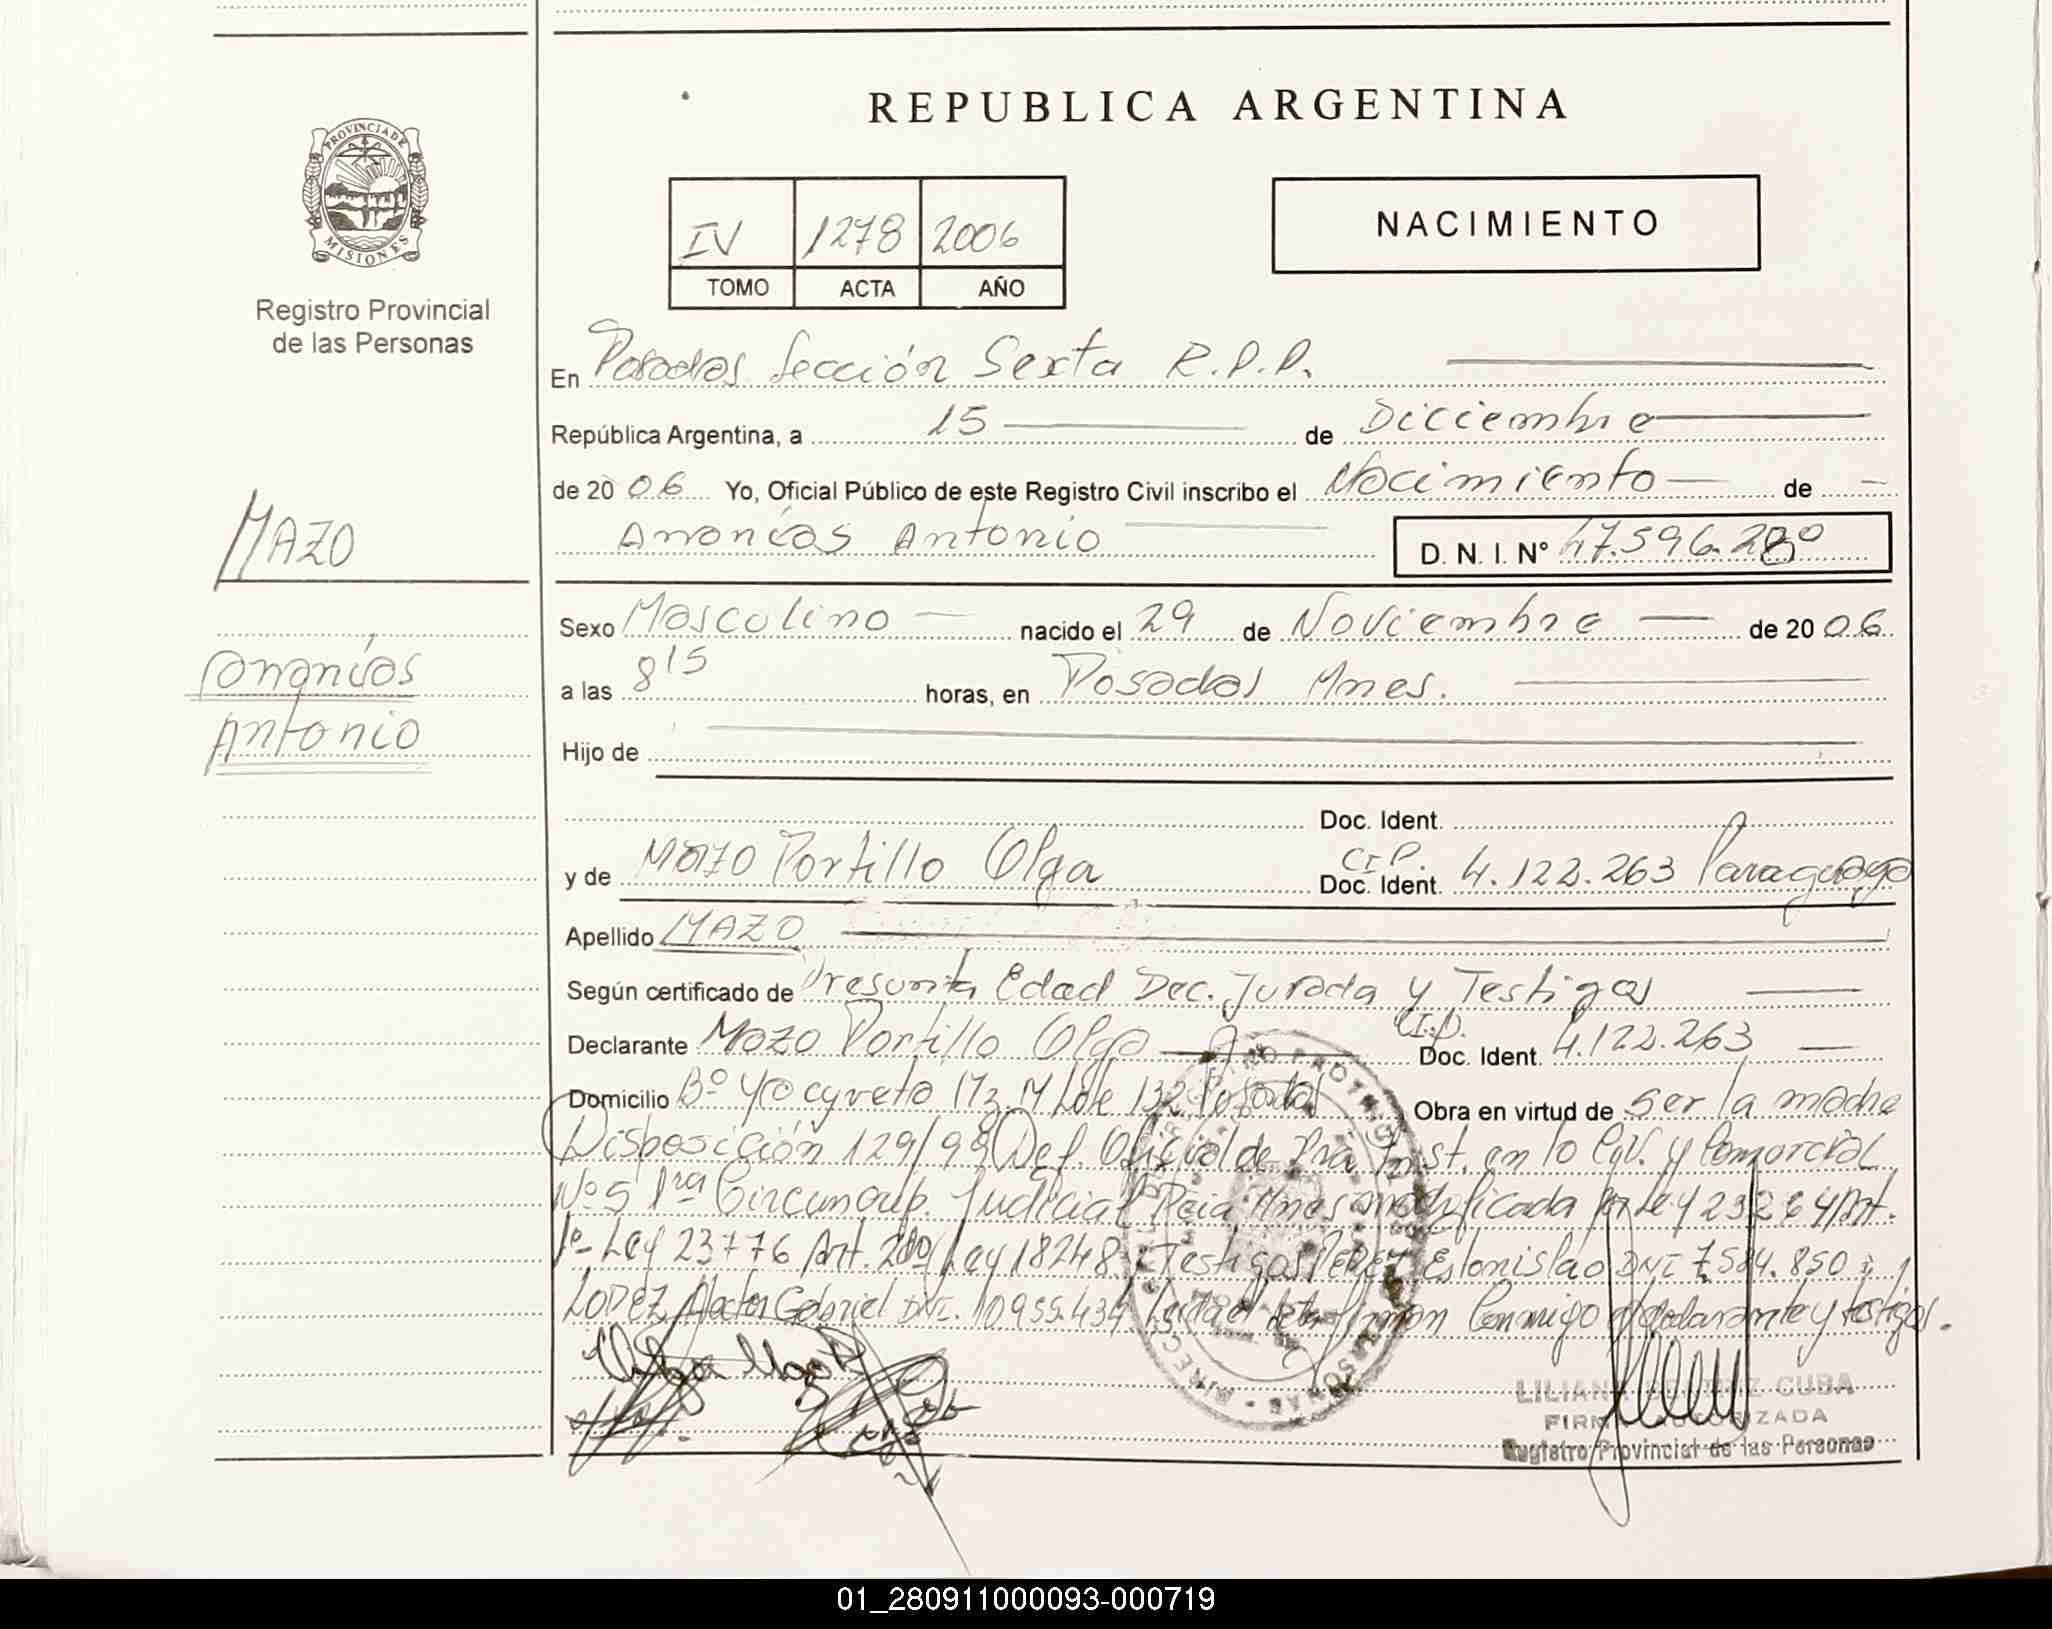 REPUBLICA ARGENTINA
PROVINCIA DE
MISIONES
Registro Provincial
de las Personas
IV 1278 2006
TOMO ACTA AÑO
NACIMIENTO
En Posadas Sección Sexta R.P.P.
República Argentina, a 15 de Diciembre
de 2006 Yo, Oficial Público de este Registro Civil inscribo el Nacimiento de
Ananías Antonio D. N. I. Nº 47.596.280
MAZO
Ananías
Antonio
Sexo Masculino nacido el 29 de Noviembre de 2006
a las 8 15 horas, en Posadas Mnes.
Hijo de
Doc. Ident.
y de Mazo Portillo Olga C.I.P. Doc. Ident. 4.122.263 Paraguaya
Apellido MAZO
Según certificado de Presunta Edad Dec. Jurada y Testigos
Declarante Mazo Portillo Olga C.I.P. Doc. Ident. 4.122.263
Domicilio Bº Yacyreta Mz. M Lote 132 Posadas Obra en virtud de ser la madre
Disposición 129/98 Def. Oficial de 1ra Inst. en lo Civ. y Comercial
Nº 5 1ra Circunscrip. Judicial Pcia Mnes modificada por Ley 23264 Art.
1º Ley 23776 Art. 2do Ley 18248. Testigos PEREZ Estanislao DNI 7.584.850 y
LOPEZ Hector Gabriel DNI. 10.955.434 Leida el firman Conmigo declarante y testigos.
Olga Mazo P
LILIANA BEATRIZ CUBA
FIRMA AUTORIZADA
Registro Provincial de las Personas
01_280911000093-000719